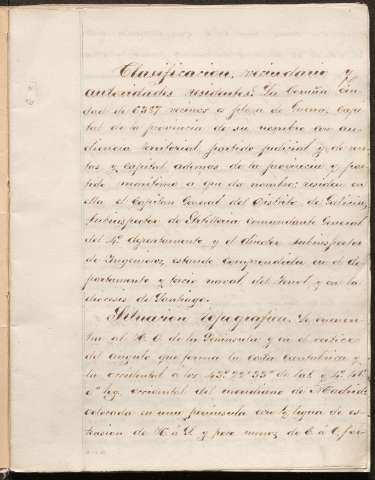 Clasificacion, vecindario y
autoridades residentes: La Coruña Ciu-
dad de 6387 vecinos es plaza de Guerra, Capi-
tal de la provincia de su nombre con au-
diencia territorial, partido judicial y de ren-
tas y capital ademas de la provincia y par-
tido maritimo a que da nombre: residen en
ella el Capitan General del Distrito de Galicia,
Subinspector de Artilleria comandante General
del 4º departamento y el director subinspector
de Ingenieros, estando comprendida en el de-
partamento y tercio naval del Ferrol, y en la
diocesis de Santiago.
Situacion topografica. Se encuen-
tra al N. O. de la Peninsula y en el vertice
del angulo que forma la costa Cantabrica y
la occidental a los 43º 22' 33" de lat. y 4º
long. occidental del meridiano de Madrid:
colocada en una peninsula con ½ legua de es-
tension de N. á S. y poco menos de E. á O.